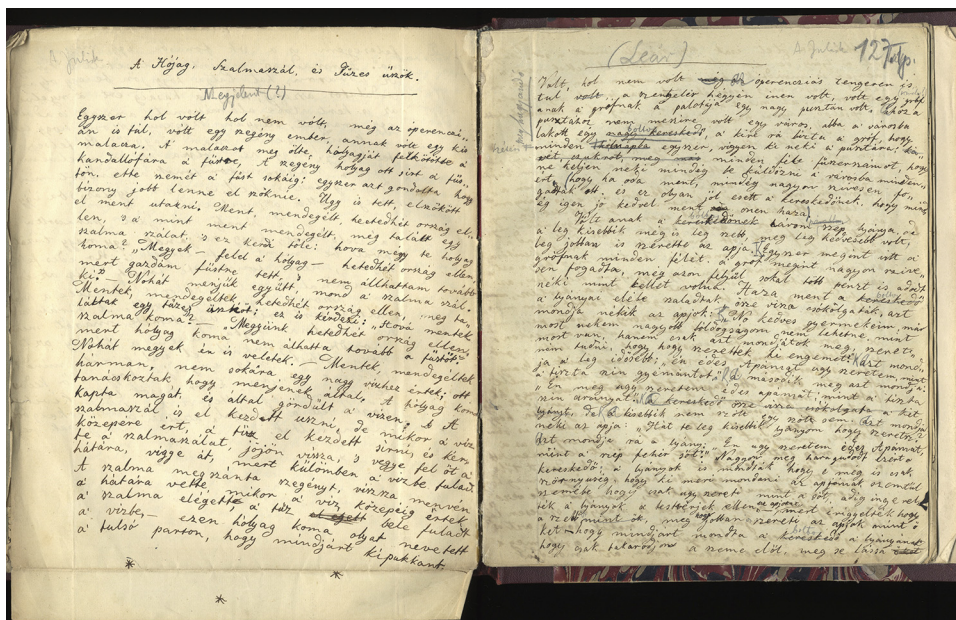 A Julik
A Hójag, Szalmaszál, és Tüzes üszök.
Megjelent (?)
Egyszer hol volt hol nem volt, még az óperencziá-
án is tul, volt egy szegény ember, annak volt egy kis
malacza, A malaczot meg ölte, hólyagját felkötötte a
handallófára a füstre, A szegény holyag ott sirt a füs-
tön, ette szemét a füst sokáig: egyszer azt gondolta hogy
bizony jobb lenne el szöknie, Ugy is tett elszökött
el ment utazni. Ment, mendegélt hetedhét ország el-
len, s a mint ment mendegélt, még talált egy
szalma szálat, s ez kérdi tőle: hova mégy te holyag
koma? „Megyek – felel a hólyag – hetedhét ország ellen
mert gazdám füstre tett, nem állhattam tovább
ki." Nohát menjük együtt, mond a szalma szál.
Mentek mendegéltek, hetedhét ország ellen, meg ta-
láltak egy tüzes üszköt; ez is kérdezi: „Hová mentek
szalma koma? – Megyünk hetedhét ország ellen,
mert hólyag koma nem álhatta tovább a füstöt."
Nohát megyek én is veletek. – Mentek mendegéltek
hárman, nem sokára egy nagy vizhez értek; ott
tanácskoztak hogy menjenek által, A hólyag koma
kapta magát, és által gördült a vizen. A
szalmaszál is el kezdett uszni, de mikor a viz
közepere ért, a tüz el kezdett sirni, és kérs
te a szalmaszálat, jöjön vissza, s vegye fel őt a
hátára, vigye át, mert külömben a vizbe fulad.
A szalma megszánta szegényt, vissza menven
a hátára vette, mikor a viz közepéig értek
a szalma elégett, a tüz bele fuladt
a vizbe, – ezen hólyag koma olyat nevetett
a tulsó parton, hogy mindjárt kipukkant.
(Leár)
A Julik
127
Volt, hol nem volt az óperencziás tengeren is
tul volt, a szengelér hegyen innen volt, volt egy gróf
anak a grófnak a palotája egy nagy pusztán volt. Ehez a
pusztához nem meszire volt egy város, abba a városba
lakott egy nagy kereskedő, a kire rá bizta a gróf, hogy
minden egyszer, vigyen ki neki a pusztára,
minden féle füszerszámot, hogy
ne keljen neki mindég be küldözni a városba minden-
ért, hogy ha oda ment, mindég nagyon szivesen fo-
gadták ott és ez olyan jól esett a kereskedőnek, hogy
ég igen jó kedvel ment onen haza,
Volt anak a kereskedőnek három szép lyánya, de
a leg kisebbik még is leg szebb, meg leg kedvesebb volt,
leg jobban is szerette az apja. Egyszer megent vitt a
grófnak minden félit. a gróf megint nagyon szive-
sen fogadta, meg azon felyül sokal több pénzt is adott
neki mint kellet volna. Haza ment a kereskedő
a lyányai elébe szaladtak, össze vissza csókolgaták, azt
mondja nékik az apjok: „No kedves gyermekeim, már
most nekem nagyobb boldogságom nem lehetne, mint
most van, hanem csak azt mondjátok meg, szeretnem
tudni, hogy hogy szerettek ki engemet? Azt mond-
ja a leg idősebb: én édes Apámat ugy szeretem, mint
a tiszta szin gyémántot." A második meg azt mondja
„Én meg ugy szeretem édes apámat, mint a tiszta
szin aranyat." A kereskedő össze vissza csókolgatta a két
lyányt, de a kisebbik nem szólt egy szót sem. Azt mondja
néki az apja: „Hát te leg kisebbik lyányom hogy szeretsz?"
Azt mondja rá a lyány: Én ugy szeretem édes Apámat,
mint a szép fehér sót." Nagyon meg haragudott ezért a
kereskedő; a lyányok is mindták, hogy e még is csak
szörnyüség, hogy ki meri mondani az apjának szemtül
szembe hogy csak ugy szereti mint a sót, adig ingerel-
ték a lyányok a testvérjek ellen – mert irigyelték hogy
a szebb mint ők, meg hogy jobban szereti az apjok mint ő
ket – hogy mindjárt mondta a kereskedő a lyányának
hogy csak takarodjon a szeme elöl, meg se lássa